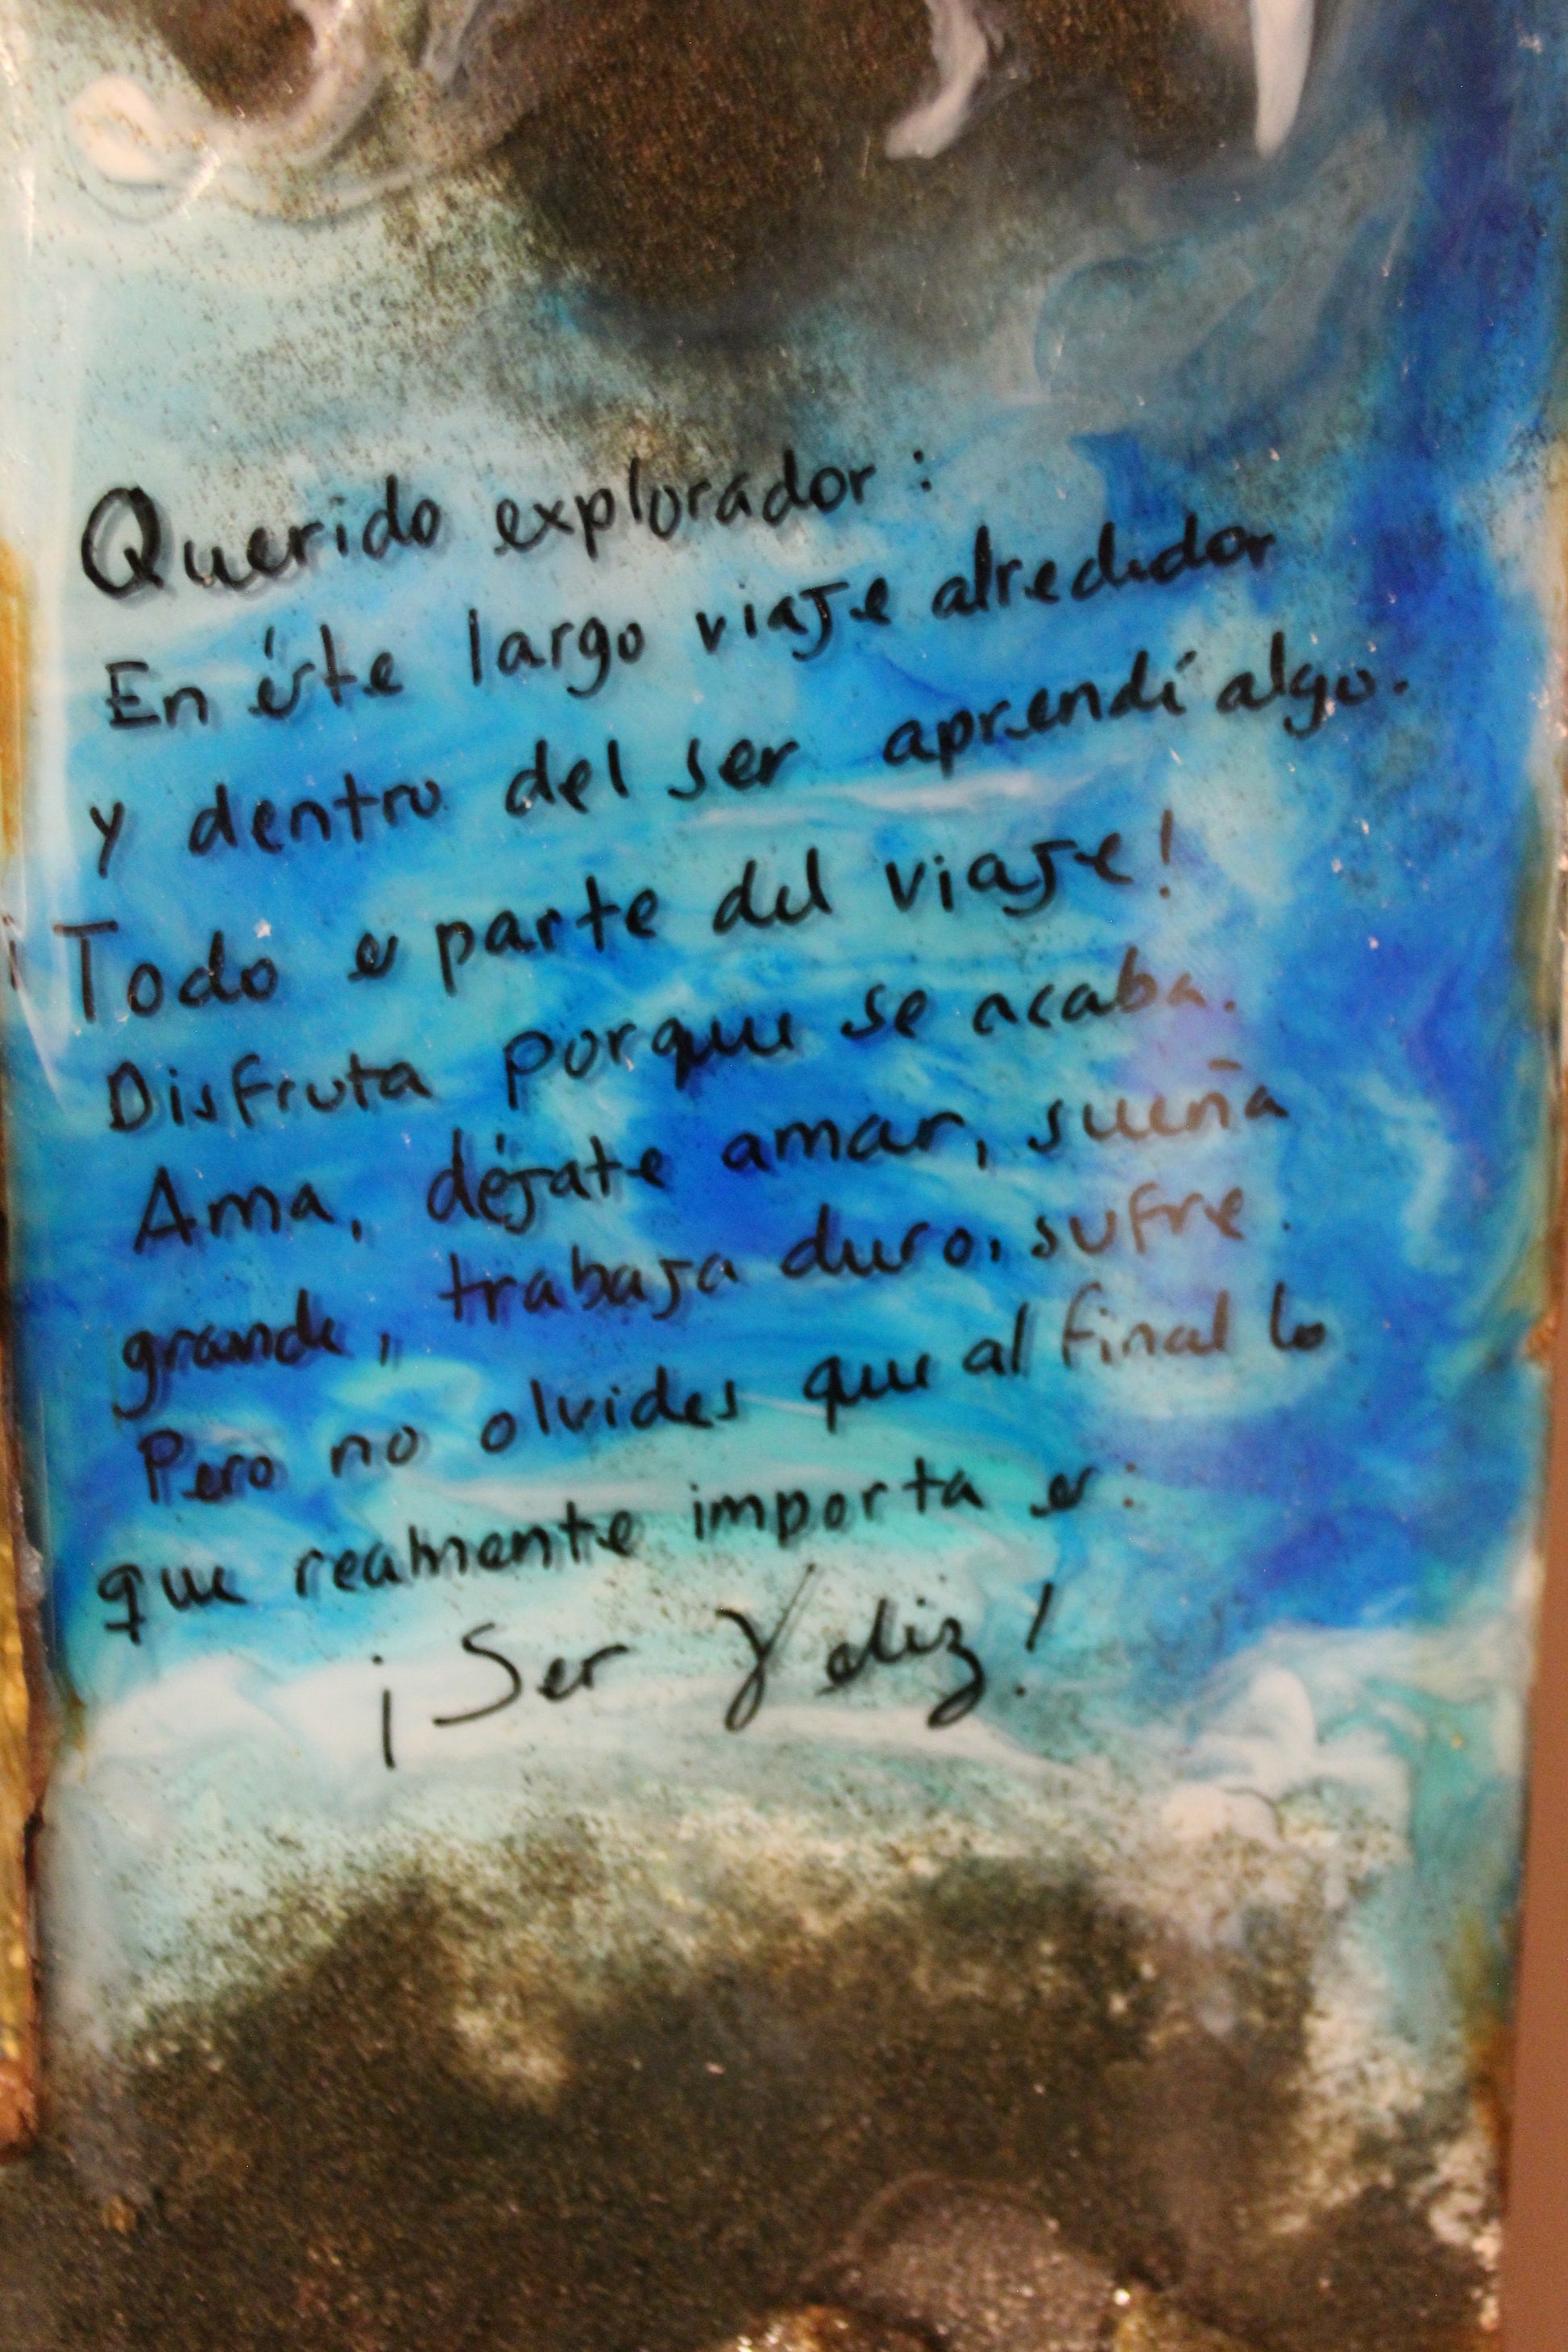 Querido explorador:
En éste largo viaje alrededor
y dentro del ser aprendí algo.
¡Todo es parte del viaje!
Disfruta porque se acaba.
Ama, déjate amar, sueña
grande, trabaja duro, sufre.
Pero no olvides que al final lo
que realmente importa es:
¡Ser Feliz!